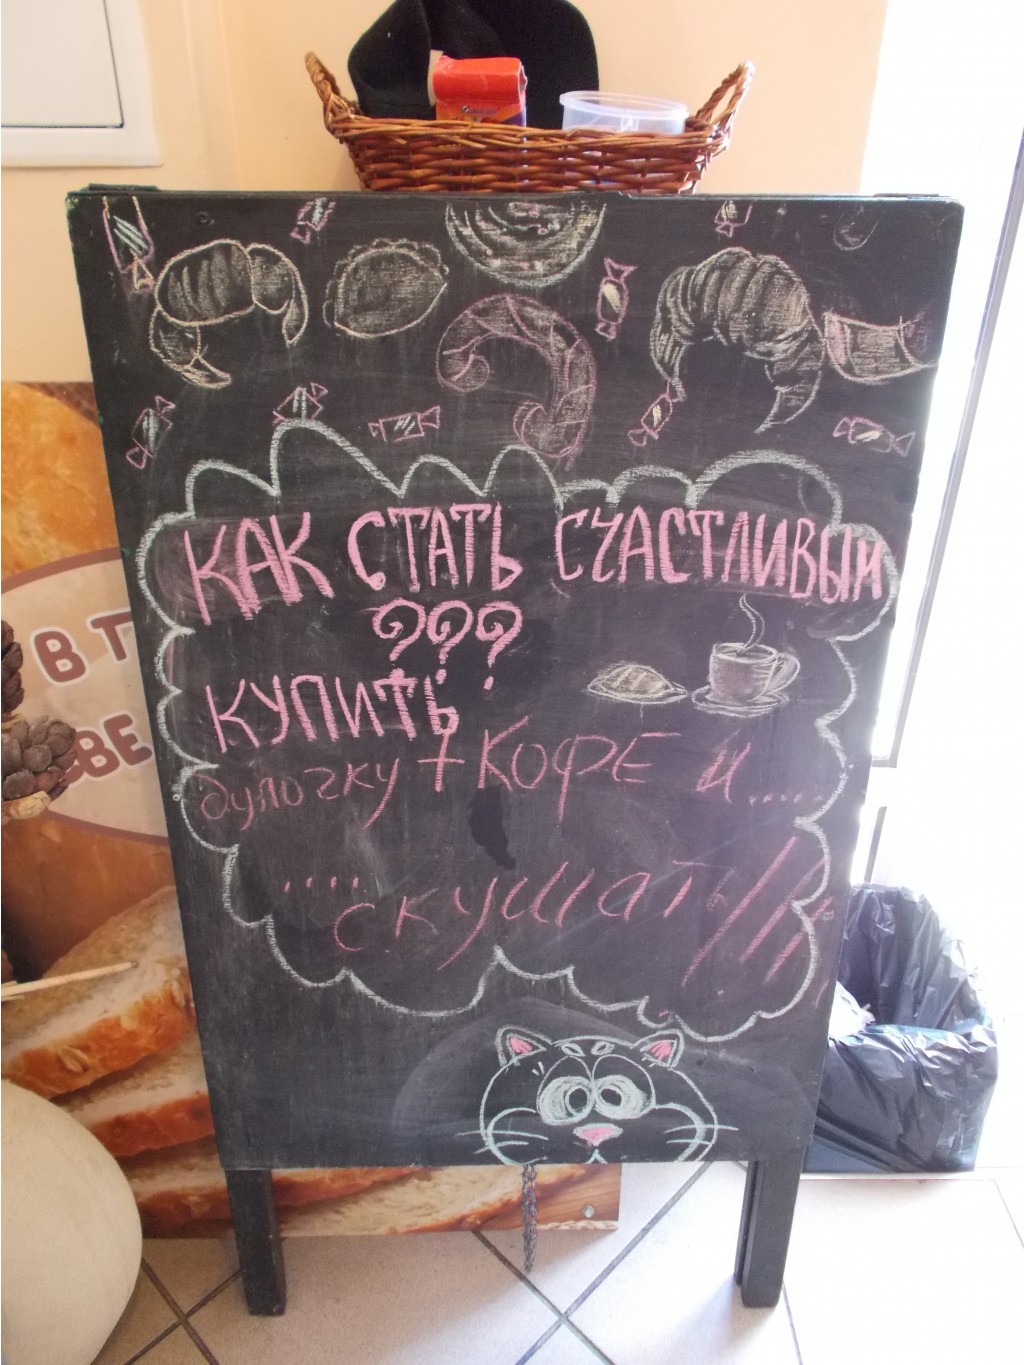 КАК СТАТЬ СЧАСТЛИВЫМ
???
КУПИТЬ
булочку + КОФЕ и ....
.... скушать!!!
В Т
ВЕ